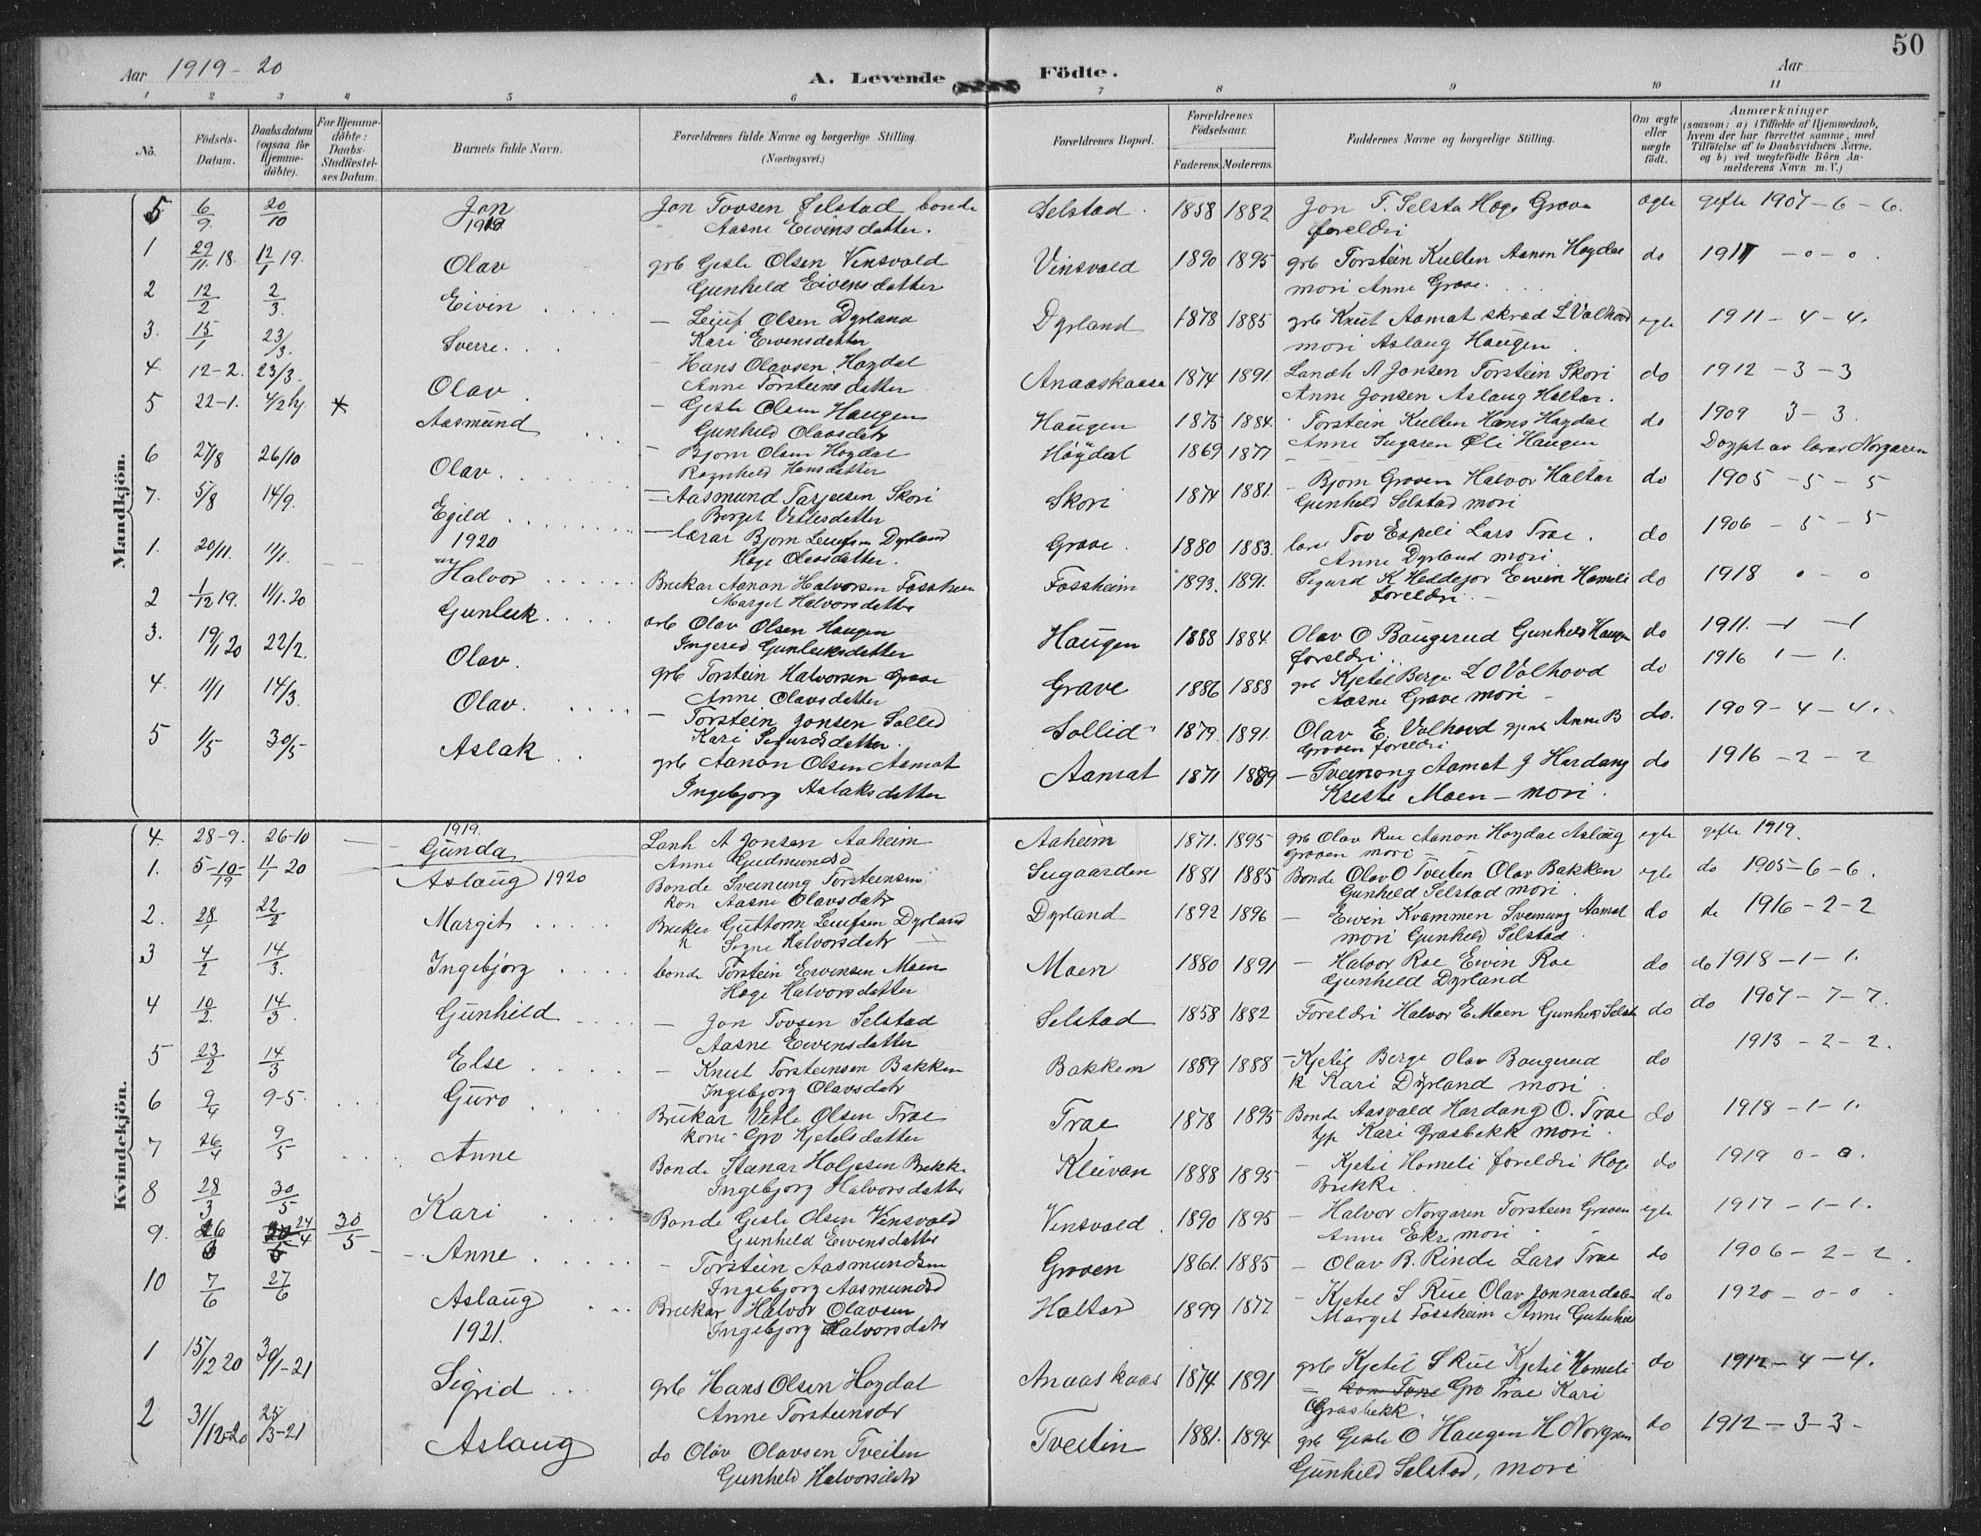 Aar 1919-20
A. Levende Födte.
Aar
50
1 2 3 4 5 6 7 8 9 10 11
No.
Födsels-Datum.
Daabsdatum (ogsaa for Hjemme-döbte).
For Hjemme-döbte: Daabs-Stadfæstel-ses Datum.
Barnets fulde Navn.
Forældrenes fulde Navne og borgerlige Stilling. (Næringsvei.)
Forældrenes Bopæl.
Forældrenes Födselsaar.
Faderens. Moderens.
Faddernes Navne og borgerlige Stilling.
Om ægte eller uægte födt.
Anmærkninger (saasom: a) i Tilfælde af Hjemmedaab, hvem der har forrettet samme, med Tilföielse af to Daabsvidners Navne, og b) ved uægtefödte Börn An-melderens Navn m. V.)
Mandkjön.
5 6/9. 20/10 Jon Jon Tovsen Selstad bonde Selstad. 1858 1882 Jon T. Selsta Hoge Grova ægte gifte 1907-6-6.
Aasne Eivinsdatter. foreldri
1 29/11 18. 12/1 19. Olav grb Gisle Olsen Vinsvald Vinsvald 1890 1895 grb Torstein Kulten Aanon Hoydal do
Gunheld Eivensdatter mori Anne Grove.
2 12/2 2/3. Eivin — Leiuf Olsen Dyrland Dyrland 1878 1885 grb Knut Aamat skræd L Valhovd egte 1911-4-4.
Kari Eivensdatter mori Aslaug Haugen
3. 15/1 23/3. Sverre — Hans Olavsen Hoydal Anaaskaasa 1874 1891. Landh A Jonsen Torstein Skori do 1912-3-3
Anne Torsteinsdatter Anne Jonsen Aslaug Haltar.
4. 12-2. 23/3. Olav — Gisle Olsen Haugen Haugen 1875 1884. Torstein Kulten Hans Hoydal do 1909 3-3.
Gunheld Olavsdatr Anne Sugaren Øli Haugen
5 22-1. Aasmund — Bjorn Olsen Hoydal Höydal 1869 1877 Doypt av lærar Norgaren
Ragnheld Hansdatter
6 27/8 26/10 Olav. — Aasmund Tarjeesen Skori Skori 1874 1881. — Bjorn Groven Halvor Haltar do 1905-5-5
Berget Vetlesdatter Gunheld Selstad mori
7. 5/8 14/9. Egild — lærar Bjorn Leiufsen Dyrland Grove. 1880 1883. Tov Espeli Lars Trae. do 1906-5-5
1920 Hoge Olavsdatter. Anne Dyrland mori
1. 20/11. 11/1. Halvor Brukar Aanon Halvorsen Fossheim Fossheim 1893. 1891. Sigurd K Heddejor Eivin Homeli do 1918 0-0
Marget Halvorsdatter foreldri
2 1/12 19. 11/1-20 Gunleik grb Olav Olsen Haugen Haugen 1888 1884. Olav O Baugerud Gunheld Haugen do 1911.-1-1
Ingered Gunleiksdatter foreldri
3. 19/1 20 22/2. Olav. grb Torstein Halvorsen Grave Grave 1886 1888 grb Kjetil Berge L O Valhovd do 1916 1-1.
Anne Olavsdatter Aasne Grave mori
4. 11/1 14/3. Olav. — Torstein Jonsen Sollid Sollid 1879. 1891. Olav E. Valhovd Anne B do. 1909-4-4.
Kari Sigurdsdatter. Groven foreldri
5 1/5 30/5 Aslak grb Aanon Olsen Aamat Aamat 1871 1889 — Sveinong Aamot G Hardang do 1916-2-2
Ingebjorg Aslaksdatter Kreste Moen — mori.
Kvindekjön.
4. 28-9. 26-10 1919. Gunda Lanh A Jonsen Aaheim Aaheim 1871. 1895 grb Olav Rue Aanon Hoydal Aslaug egte gifte 1919.
Anne Gudmundsd Groven mori
1. 5-10-19 11/1 20 Aslaug 1920 Bonde Sveinung Torsteinsen Sugaarden 1881 1885 Bonde Olav O Tveiten Olav Bakken egte do 1905-6-6.
kon Aasne Olavsdatr Gunheld Selstad mori.
2. 28/1 22/2 Margit Bruker Guttorm Leiufsen Dyrland Dyrland 1892 1896 — Eivin Kvammen Sveinung Aamat do do 1916-2-2
k Signe Halvorsdatr mori Gunheld Selstad
3 4/2 14/3. Ingebjorg bonde Torstein Eivensen Moen Moen 1880 1891 — Halvor Roe Eivin Roe do do 1918-1-1.
Hoge Halvorsdatter Gunheld Dyrland
4 10/2 14/3. Gunhild — Jon Tovsen Selstad Selstad 1858 1882 Foreldri Halvor E Moen Gunheld Selst do do 1907-7-7.
Aasne Eivensdatter
5 23/2 14/3 Else — Knut Torsteinsen Bakken Bakkem 1889 1888 — Kjetil Berge Olav Baugerud do 1913-2-2.
Ingebjorg Olavsdatr k Kari Dyrland mori
6 9/4 9-5. Guro Brukar Vetle Olsen Trae Trae 1878 1895 Bonde Aasvald Hardang O. Trae do 1918-1-1.
kone Gro Kjetelsdatter Kari Grasbekk mori.
7 26/4 9/5 Anne Bonde Steinar Holjesen Brekke Kleivan 1888 1895 — Kjetil Homeli foreldri Hoge do 1919 0-0.
Ingebjorg Halvorsdatter Brekke.
8 28/3 30/5 Kari Bonde Gisle Olsen Vinsvald Vinsvald. 1890 1895 — Halvor Norgaren Torstein Groven egte 1917-1-1.
Gunheld Eivensdatter Anne Ekre mori
9. 30/5 Anne — Torstein Aasmundsen Groven 1861. 1885 — Olav B. Rinde Lars Trae do 1906-2-2.
Ingebjorg Aasmundsd
10 7/6 27/6 Aslaug Brukar Halvor Olavsen Haltar 1899 1877. — Kjetel S Rue Olav Jonnardalen do 1920-0-0
1921. Ingebjorg Halvorsdatr Marget Fossheim Anne
1 15/12 20 30/1-21 Sigrid grb Hans Olsen Hoydal Anaaskaas 1874 1891 grb Kjetil S Rue Kjetil Homeli do 1912-4-4.
Anne Torsteinsdr — kon Tone Gro Trae Kari
Grasbekk.
2 31/12-20 25/3-21 Aslaug do Olav Olavsen Tveiten Tveitin 1881. 1894 grb Gisle O Haugen H O Norgren do 1912-3-3-
Gunheld Halvorsdatr Gunheld Selstad, mori